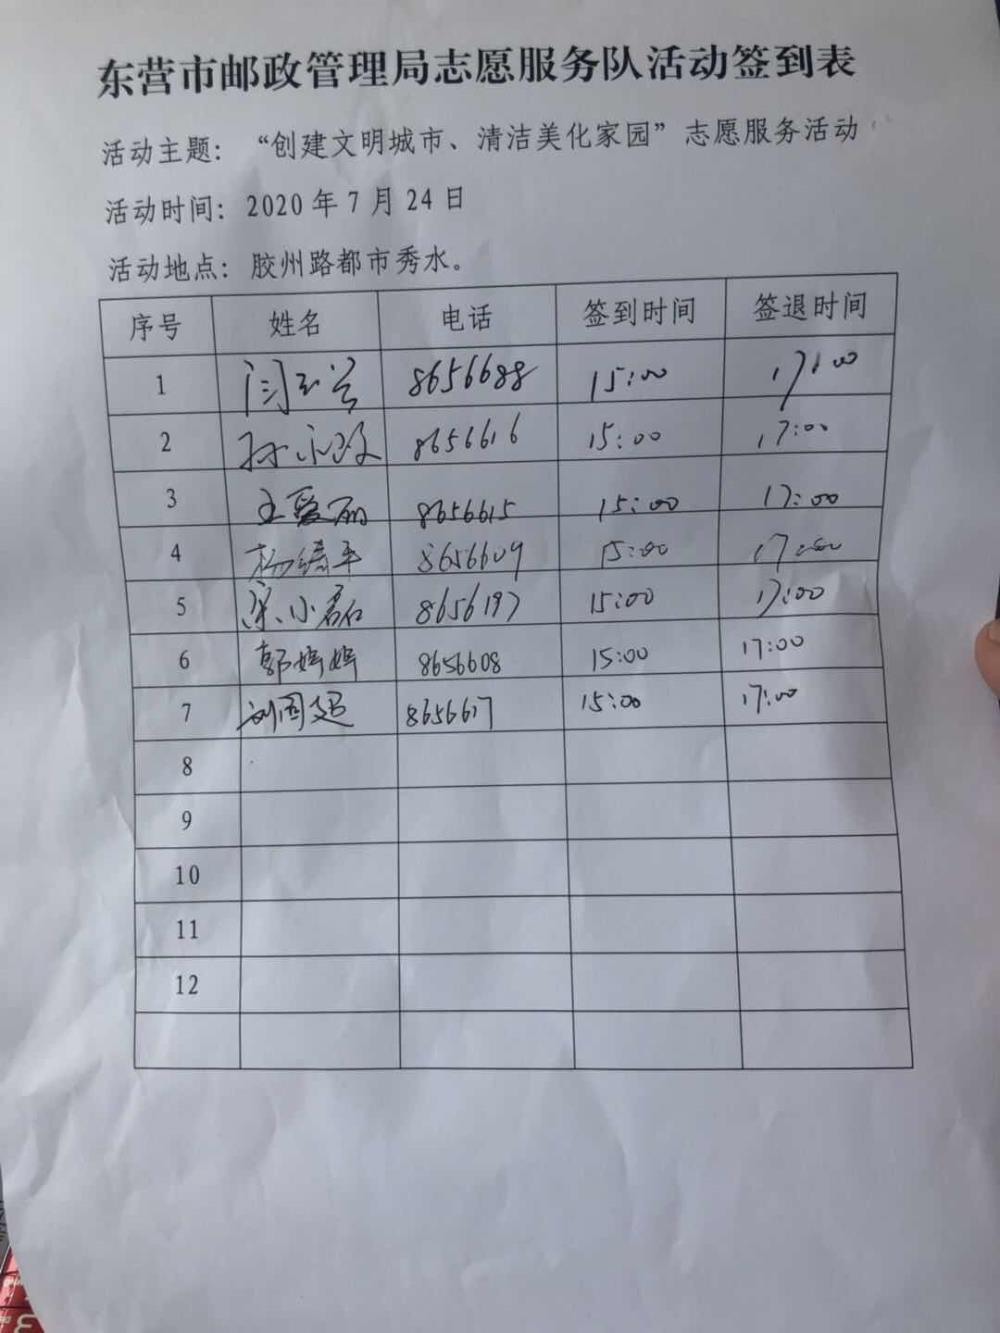 东营市邮政管理局志愿服务队活动签到表
活动主题：“创建文明城市、清洁美化家园”志愿服务活动
活动时间：2020 年 7 月 24 日
活动地点：胶州路都市秀水。
序号 姓名 电话 签到时间 签退时间
1 8656688 15:00 17:00
2 8656616 15:00 17:00
3 王爱丽 8656615 15:00 17:00
4 8656609 15:00 17:00
5 8656197 15:00 17:00
6 郭婷婷 8656608 15:00 17:00
7 刘国超 8656617 15:00 17:00
8
9
10
11
12